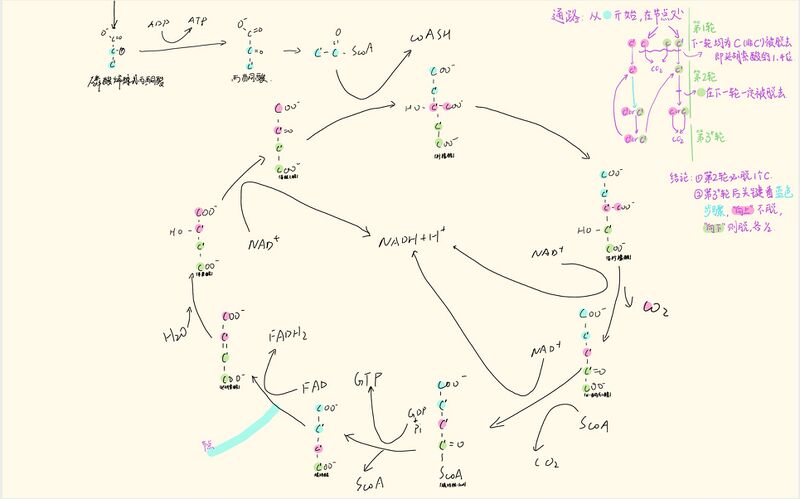 ADP
ATP
O⁻
C=O
C-Ⓟ
C
磷酸烯醇式丙酮酸
O⁻
C=O
C=O
C
丙酮酸
O
C-C-SCoA
CoASH
COO⁻
C
HO-C-COO⁻
C
COO⁻
(柠檬酸)
COO⁻
C
C-COO⁻
HO-C
COO⁻
(异柠檬酸)
NAD⁺
CO₂
COO⁻
C
C
C=O
COO⁻
NAD⁺
SCoA
CO₂
NADH+H⁺
COO⁻
C
C
C=O
SCoA
GTP
GDP
+
Pi
SCoA
COO⁻
C
C
COO⁻
FAD
FADH₂
COO⁻
C
C
COO⁻
H₂O
COO⁻
HO-C
C
COO⁻
NAD⁺
COO⁻
C=O
C
COO⁻
通路：从 开始，在节点处
第1轮
下一轮均为C(非C')被脱去
即延胡索酸的1.4位
CO₂
第2轮
在下一轮一定被脱去
C or C
C or C
C or C
CO₂
第3⁺轮
结论：①第2轮必脱1个C.
②第3⁺轮后关键看蓝色
步骤，"向上"不脱，
"向下"则脱，各½